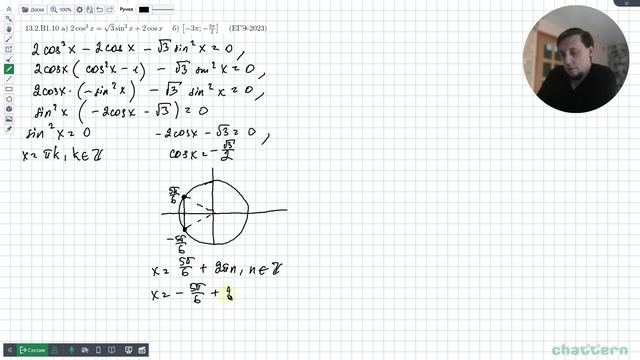 Доска Ручка
13.2.B1.10 а) 2 cos³ x = √3 sin² x + 2 cos x б) [−3π; −3π/2] (ЕГЭ-2023)
2cos³x − 2cosx − √3 sin²x = 0,
2cosx (cos²x − 1) − √3 sin²x = 0,
2cosx · (−sin²x) − √3 sin²x = 0,
sin²x (−2cosx − √3) = 0
sin²x = 0 −2cosx − √3 = 0,
x = πk, k∈ℤ cosx = −√3/2
5π/6
−5π/6
x = 5π/6 + 2πn, n∈ℤ
x = −5π/6 +
Сессия chattern